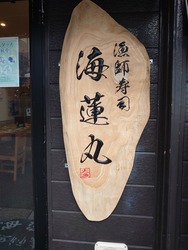 漁師寿司
海蓮丸